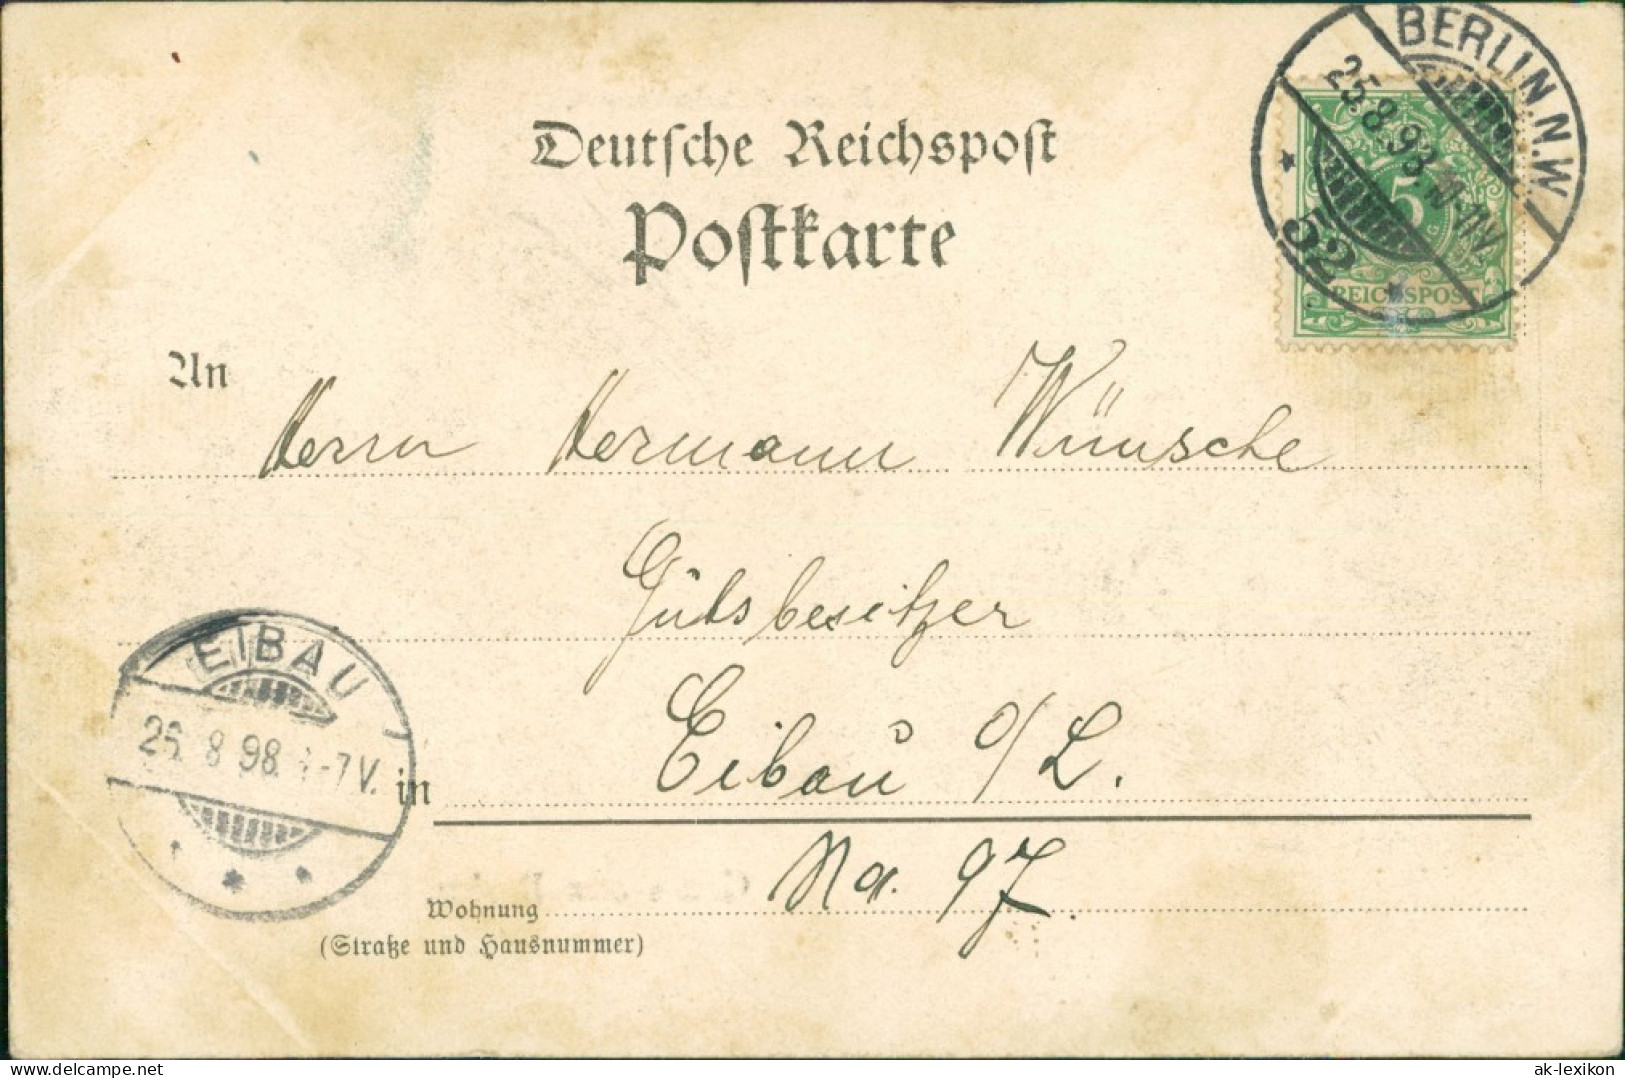 BERLIN.N.W
25.8.98.
52
5
REICHSPOST
Deutsche Reichspost
Postkarte
An
Herrn Hermann Wünsche
Gutsbesitzer
Eibau o/L.
in
No. 97.
EIBAU
8 98. -7V.
Wohnung
(Straße und Hausnummer)
www.delcampe.net
ak-lexikon